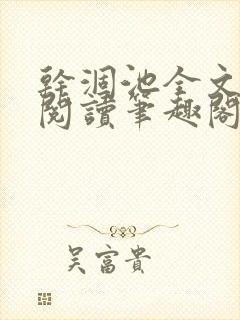 幹涸池全文
閱讀筆趣閣
吴富貴